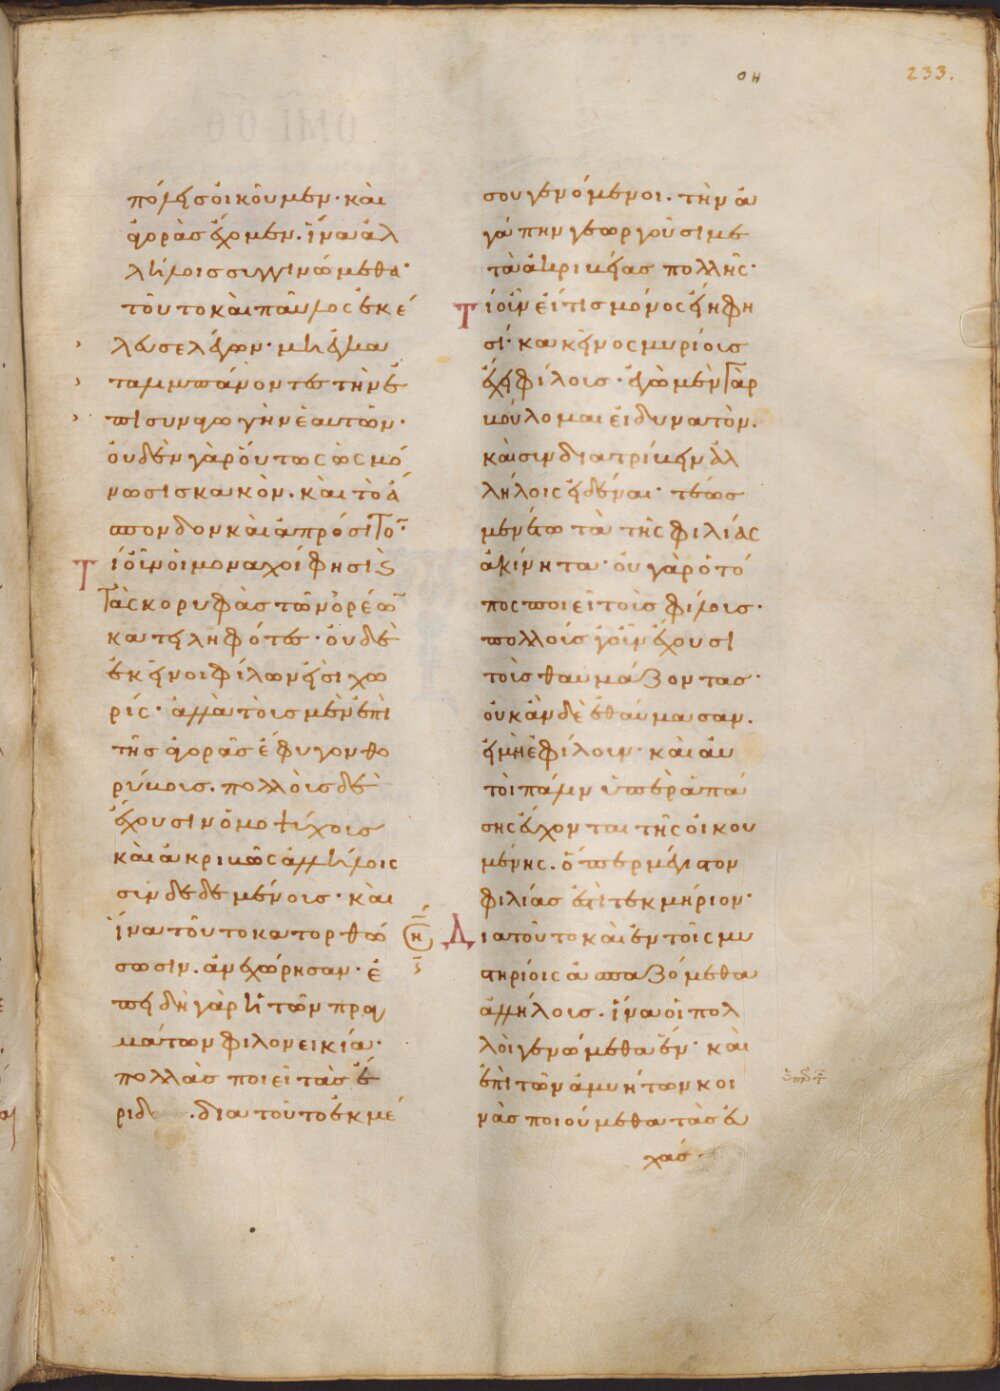 οη
233.
πόλεις οἰκοῦμεν· καὶ
ἀγορὰς ἔχομεν. ἵνα ἀλ
λήλοις συγγινώμεθα·
τοῦτο καὶ παῦλος ἐκέ
λευσε λέγων· μὴ ἐγκα
ταλιμπάνοντες τὴν ἐ
πισυναγωγὴν ἑαυτῶν·
οὐδὲν γὰρ οὕτως ὡς μό
νωσις κακὸν. καὶ τὸ ἀ
σπονδον καὶ ἀπρόσιτον·
Τί οὖν οἱ μοναχοί φησι
τὰς κορυφὰς τῶν ὀρέων
κατειληφότες· οὐδὲ
ἐκεῖνοι φίλων εἰσὶ χω
ρίς· ἀλλὰ τοῖς μὲν ἐπὶ
τῆς ἀγορᾶς ἔφυγον θο
ρύβοις. πολλοῖς δὲ
ἔχουσιν ὁμοψύχοις
καὶ ἀκριβῶς ἀλλήλοις
συνδεδεμένοις· καὶ
ἵνα τοῦτο κατορθώ
σωσιν. ἀνεχώρησαν· ἐ
πειδὴ γὰρ ἡ τῶν πραγ
μάτων φιλονεικία·
πολλὰς ποιεῖ τὰς ἔ
ριδ .διατοῦτο ἐκ μέ
σου γενόμενοι. τὴν ἀ
γάπην γεωργοῦσι με
τὰ ἀκριβείας πολλῆς·
Τί οὖν εἴ τις μόνος εἴη φη
σί· κἀκεῖνος μυρίοις
ἔχει φίλοις· ἐγὼ μὲν γὰρ
βούλομαι εἰ δυνατὸν.
καὶ συνδιατρίβειν ἀλ
λήλοις εἰδέναι· τέως
μενέτω τὰ τῆς φιλίας
ἀκίνητα· οὐ γὰρ ὁ τό
πος ποιεῖ τοὺς φίλους·
πολλοὺς γοῦν ἔχουσι
τοὺς θαυμάζοντας·
οὐκ ἂν δὲ ἐθαύμασαν.
εἰ μὴ ἐφίλουν· καὶ αὐ
τοὶ πάλιν ὑπὲρ ἁπά
σης εὔχονται τῆς οἰκου
μένης. ὅπερ μέγιστον
φιλίας ἐστὶ τεκμήριον·
Διατοῦτο καὶ ἐν τοῖς μυ
στηρίοις ἀσπαζόμεθα
ἀλλήλους. ἵνα οἱ πολ
λοὶ γενώμεθα ἕν· καὶ
ἐπὶ τῶν ἀμυήτων κοι
νὰς ποιούμεθα τὰς εὐ
χάς·